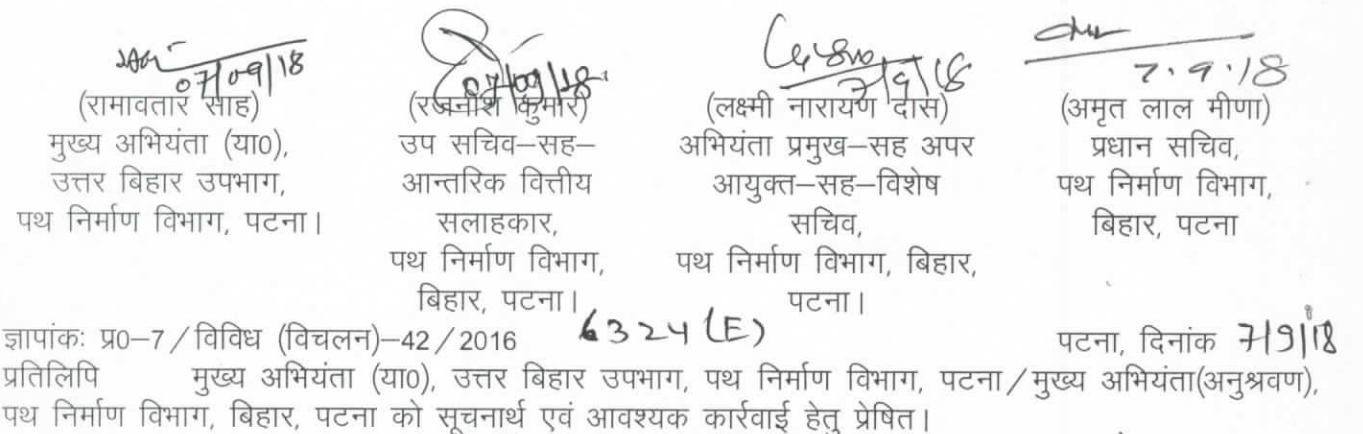 07/09/18
07/09/18
7/9/18
7.9.18
(रामावतार साह)
मुख्य अभियंता (या0),
उत्तर बिहार उपभाग,
पथ निर्माण विभाग, पटना।
(रजनीश कुमार)
उप सचिव–सह–
आन्तरिक वित्तीय
सलाहकार,
पथ निर्माण विभाग,
बिहार, पटना।
(लक्ष्मी नारायण दास)
अभियंता प्रमुख–सह अपर
आयुक्त–सह–विशेष
सचिव,
पथ निर्माण विभाग, बिहार,
पटना।
(अमृत लाल मीणा)
प्रधान सचिव,
पथ निर्माण विभाग,
बिहार, पटना
ज्ञापांकः प्र0–7/विविध (विचलन)–42/2016 6324(E) पटना, दिनांक 7/9/18
प्रतिलिपि मुख्य अभियंता (या0), उत्तर बिहार उपभाग, पथ निर्माण विभाग, पटना/मुख्य अभियंता(अनुश्रवण),
पथ निर्माण विभाग, बिहार, पटना को सूचनार्थ एवं आवश्यक कार्रवाई हेतु प्रेषित।